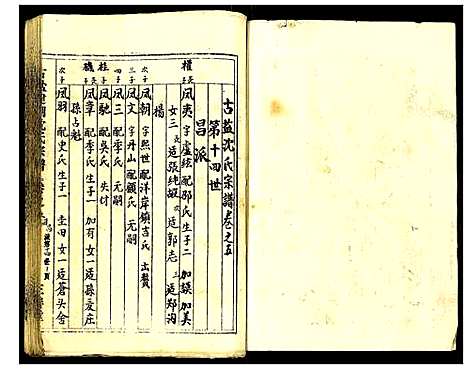 古盐沈氏宗譜卷之五
第十四世
昌派
權 長 凤夷 字虛絃 配邵氏 生子二 加謨 加美
女三 長适張純嘏 次适郭志 三适郑沟
楊 次子 凤朝 字熙世 配洋岸鎮吉氏 出贅
三子 凤文 字丹山 配顧氏 无嗣
四子 凤三 配李氏 无嗣
柱 長 凤馳 配吳氏 失付
磯 長子 凤章 配李氏 生子一 加有 女一适孫友庄
孫占魁
次子 凤羽 配史氏 生子一 圭田 女一适蒼头舍